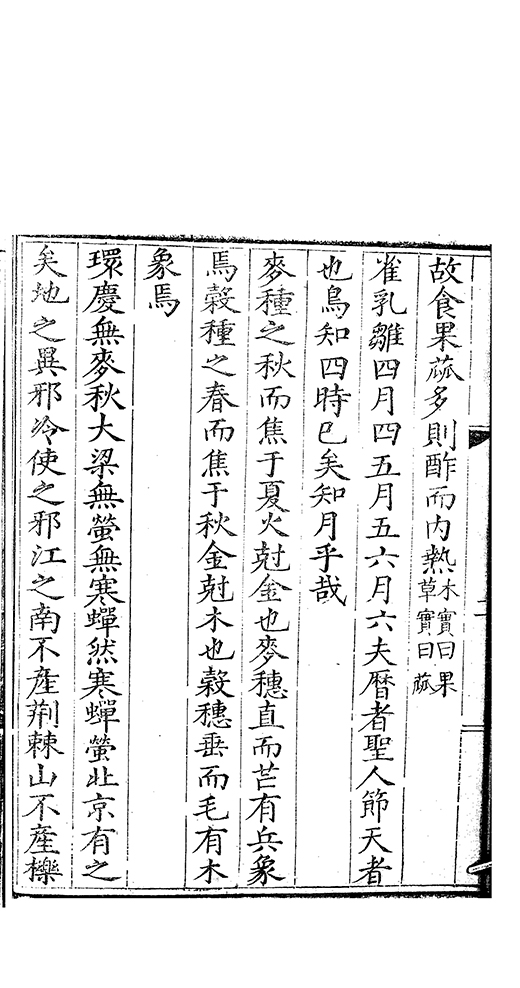 故食果蓏多則酢而内熱木實曰果草實曰蓏
雀乳雛四月四五月五六月六夫暦者聖人節天者
也鳥知四時已矣知月乎哉
麥種之秋而焦于夏火尅金也麥穗直而芒有兵象
焉穀種之春而焦于秋金尅木也穀穗垂而毛有木
象焉
環慶無麥秋大梁無螢無寒蟬然寒蟬螢北京有之
矣地之異邪冷使之邪江之南不產荆棘山不產櫟